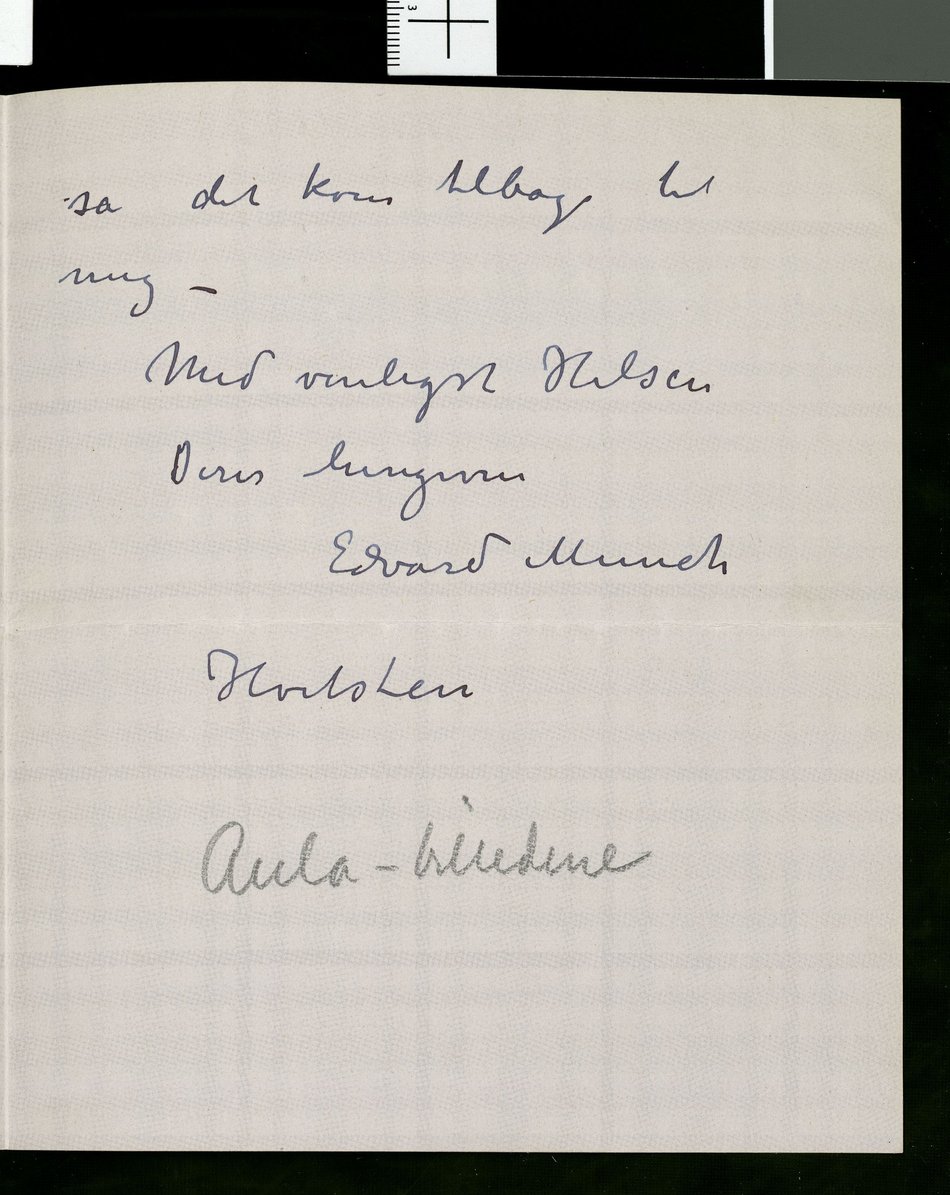 så det kom tilbage til
mig –
Med venligst Hilsen
Deres hengivne
Edvard Munch
Hvitsten
Aula – billedene